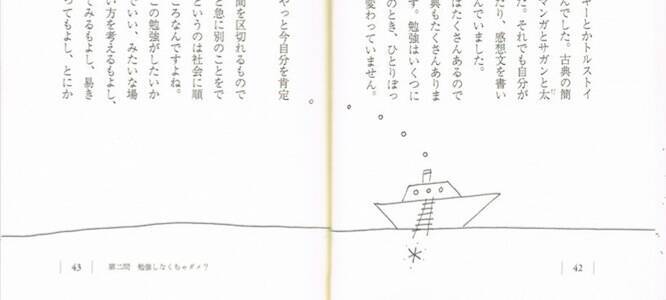 キーとかトルストイ
んでした。古典の簡
マンガとサガンと太
た。それでも自分が
たり、感想文を書い
んでいました。
はたくさんあるので
典もたくさんありま
す。勉強はいくつに
のとき、ひとりぼっ
変わっていません。
42
やっと今自分を肯定
間を区切れるもので
と急に別のことをで
というのは社会に順
ころなんですよね。
この勉強がしたいか
でいい、みたいな場
い方を考えるもよし、
てみるもよし、易き
ってもよし、とにか
43 第二問 勉強しなくちゃダメ?